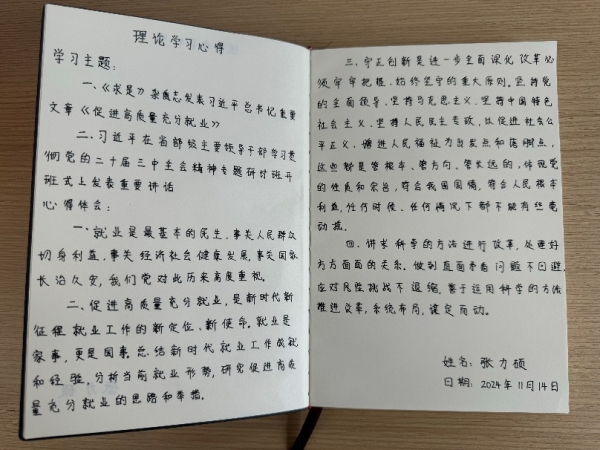 理论学习心得
学习主题：
一、《求是》杂志发表习近平总书记重要
文章《促进高质量充分就业》
二、习近平在省部级主要领导干部学习贯
彻党的二十届三中全会精神专题研讨班开
班式上发表重要讲话
心得体会：
一、就业是最基本的民生，事关人民群众
切身利益，事关经济社会健康发展，事关国家
长治久安，我们党对此历来高度重视。
二、促进高质量充分就业，是新时代新
征程就业工作的新定位、新使命。就业是
家事，更是国事。总结新时代就业工作成就
和经验，分析当前就业形势，研究促进高质
量充分就业的思路和举措。
三、守正创新是进一步全面深化改革必
须牢牢把握、始终坚守的重大原则。坚持党
的全面领导、坚持马克思主义、坚持中国特色
社会主义、坚持人民民主专政，以促进社会公
平正义、增进人民福祉为出发点和落脚点，
这些都是管根本、管方向、管长远的，体现党
的性质和宗旨，符合我国国情，符合人民根本
利益，任何时候、任何情况下都不能有丝毫
动摇。
四、讲求科学的方法进行改革，处理好
方方面面的关系。做到直面矛盾问题不回避，
应对风险挑战不退缩，善于运用科学的方法
推进改革，系统布局，谋定而动。
姓名：张力硕
日期：2024年11月14日